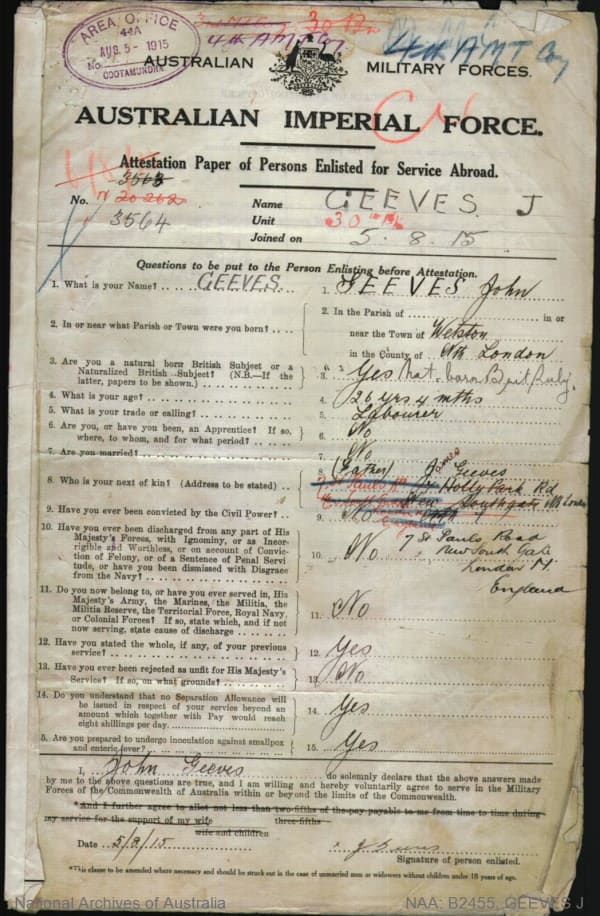 AREA OFFICE
44A
AUG 5 - 1915
No.
COOTAMUNDRA
30 Bn
4th A M T Coy
4th A M T Coy
AUSTRALIAN MILITARY FORCES.
AUSTRALIAN IMPERIAL FORCE.
Attestation Paper of Persons Enlisted for Service Abroad.
3563
No. 20262
3564
Name GEEVES. J
Unit 30th Bn
Joined on 5. 8. 15
Questions to be put to the Person Enlisting before Attestation.
1. What is your Name? GEEVES. 1. GEEVES John
2. In or near what Parish or Town were you born? 2. In the Parish of in or
near the Town of
in the County of Nth London
3. Are you a natural born British Subject or a
Naturalized British Subject? (N.B.—If the
latter, papers to be shown.) 3. Yes Nat. born Brit Subj.
4. What is your age? 4. 26 yrs 4 mths
5. What is your trade or calling? 5. Labourer
6. Are you, or have you been, an Apprentice? If so,
where, to whom, and for what period? 6. No
7. Are you married? 7. No
8. Who is your next of kin? (Address to be stated) 8. (Father) James Geeves
Holly Park Rd
New Southgate Nth London
7 St Pauls Road
New South Gate
London N.
England
9. Have you ever been convicted by the Civil Power? 9. No
10. Have you ever been discharged from any part of His
Majesty's Forces, with Ignominy, or as Incor-
rigible and Worthless, or on account of Convic-
tion of Felony, or of a Sentence of Penal Servi-
tude, or have you been dismissed with Disgrace
from the Navy? 10. No
11. Do you now belong to, or have you ever served in, His
Majesty's Army, the Marines, the Militia, the
Militia Reserve, the Territorial Force, Royal Navy,
or Colonial Forces? If so, state which, and if not
now serving, state cause of discharge 11. No
12. Have you stated the whole, if any, of your previous
service? 12. Yes
13. Have you ever been rejected as unfit for His Majesty's
Service? If so, on what grounds? 13. No
14. Do you understand that no Separation Allowance will
be issued in respect of your service beyond an
amount which together with Pay would reach
eight shillings per day. 14. Yes
5. Are you prepared to undergo inoculation against smallpox
and enteric fever? 15. Yes
I, John Geeves do solemnly declare that the above answers made
by me to the above questions are true, and I am willing and hereby voluntarily agree to serve in the Military
Forces of the Commonwealth of Australia within or beyond the limits of the Commonwealth.
*And I further agree to allot not less than two-fifths of the pay payable to me from time to time during
my service for the support of my wife three-fifths
wife and children
Date 5/8/15 J Geeves
Signature of person enlisted.
*This clause to be amended where necessary and should be struck out in the case of unmarried men or widowers without children under 16 years of age.
National Archives of Australia NAA: B2455, GEEVES J